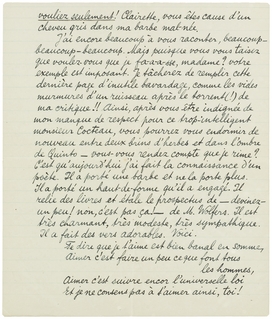 voulez seulement! Clairette, vous êtes cause d'un
cheveu gris dans ma barbe mal née.
J'ai encore beaucoup à vous raconter, beaucoup-
beaucoup-beaucoup. Mais puisque vous vous taisez
que voulez vous que je fa-a-a-sse, madame? votre
exemple est imposant. Je tâcherez de remplir cette
dernière page d'inutile bavardage, comme les vides
murmures d'un ruisseau après le torrent(!) de
ma critique!! Ainsi, après vous être indignée de
mon manque de respect pour ce trop-intelligent
monsieur Cocteau, vous pourrez vous endormir de
nouveau entre deux brins d'herbes et dans l'ombre
de Quinto — vous vous rendez compte que je rime?
C'est qu'aujourd'hui j'ai fait la connaissance d'un
poète. Il a porté une barbe et ne la porte plus.
Il a porté un haut-de-forme qu'il a engagé. Il
relie des livres et étale le prospectus de — devinez-
un peu! non, c'est pas ça — de M. Wolfers. Il est
très charmant, très modeste, très sympathique.
Il a fait des vers adorables. Voici:
Te dire que je t'aime est bien banal en somme,
Aimer c'est faire un peu ce que font tous
les hommes,
Aimer c'est suivre encor l'universelle loi
Et je ne consens pas à t'aimer ainsi, toi!